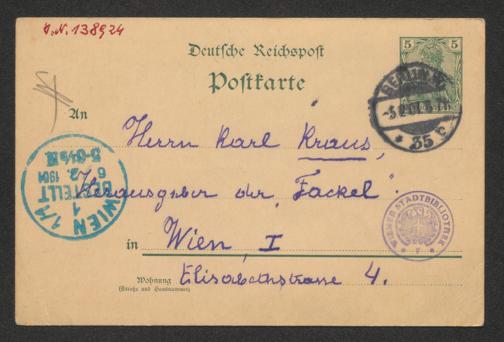 J.N. 138924
Deutsche Reichspost
Postkarte
5 5
BERLIN W.
35 c
An
Herrn Karl Kraus,
Herausgeber der „Fackel"
in Wien, I
Wohnung
(Straße und Hausnummer)
Elisabethstrasse 4.
WIEN 1/1
1
BESTELLT
6. 2. 1901
WIENER STADTBIBLIOTHEK